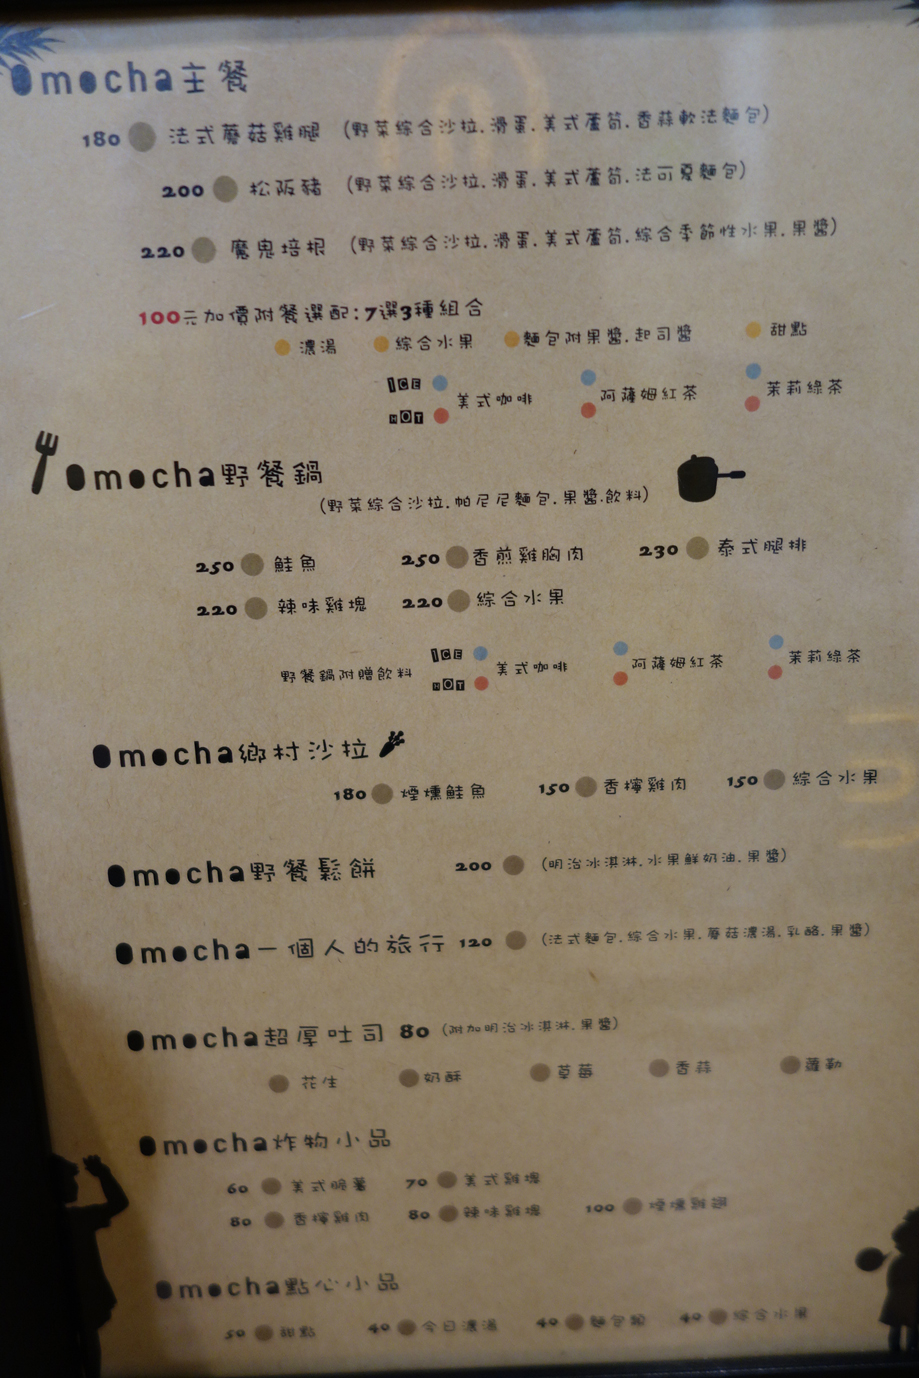 Omocha主餐
180 法式蘑菇雞腿 (野菜綜合沙拉.滑蛋.美式蘆筍.香蒜軟法麵包)
200 松阪豬 (野菜綜合沙拉.滑蛋.美式蘆筍.法可夏麵包)
220 魔鬼培根 (野菜綜合沙拉.滑蛋.美式蘆筍.綜合季節性水果.果醬)
100元加價附餐選配:7選3種組合
濃湯 綜合水果 麵包附果醬.起司醬 甜點
ICE
HOT 美式咖啡 阿薩姆紅茶 茉莉綠茶
Omocha野餐鍋
(野菜綜合沙拉.帕尼尼麵包.果醬.飲料)
250 鮭魚 250 香煎雞胸肉 230 泰式腿排
220 辣味雞塊 220 綜合水果
ICE
野餐鍋附贈飲料 HOT 美式咖啡 阿薩姆紅茶 茉莉綠茶
Omocha鄉村沙拉
180 煙燻鮭魚 150 香檸雞肉 150 綜合水果
Omocha野餐鬆餅 200 (明治冰淇淋.水果鮮奶油.果醬)
Omocha一個人的旅行 120 (法式麵包.綜合水果.蘑菇濃湯.乳酪.果醬)
Omocha超厚吐司 80 (附加明治冰淇淋.果醬)
花生 奶酥 草莓 香蒜 蘿勒
Omocha炸物小品
60 美式脆薯 70 美式雞塊
80 香檸雞肉 80 辣味雞塊 100 煙燻雞翅
Omocha點心小品
50 甜點 40 今日濃湯 40 麵包類 40 綜合水果